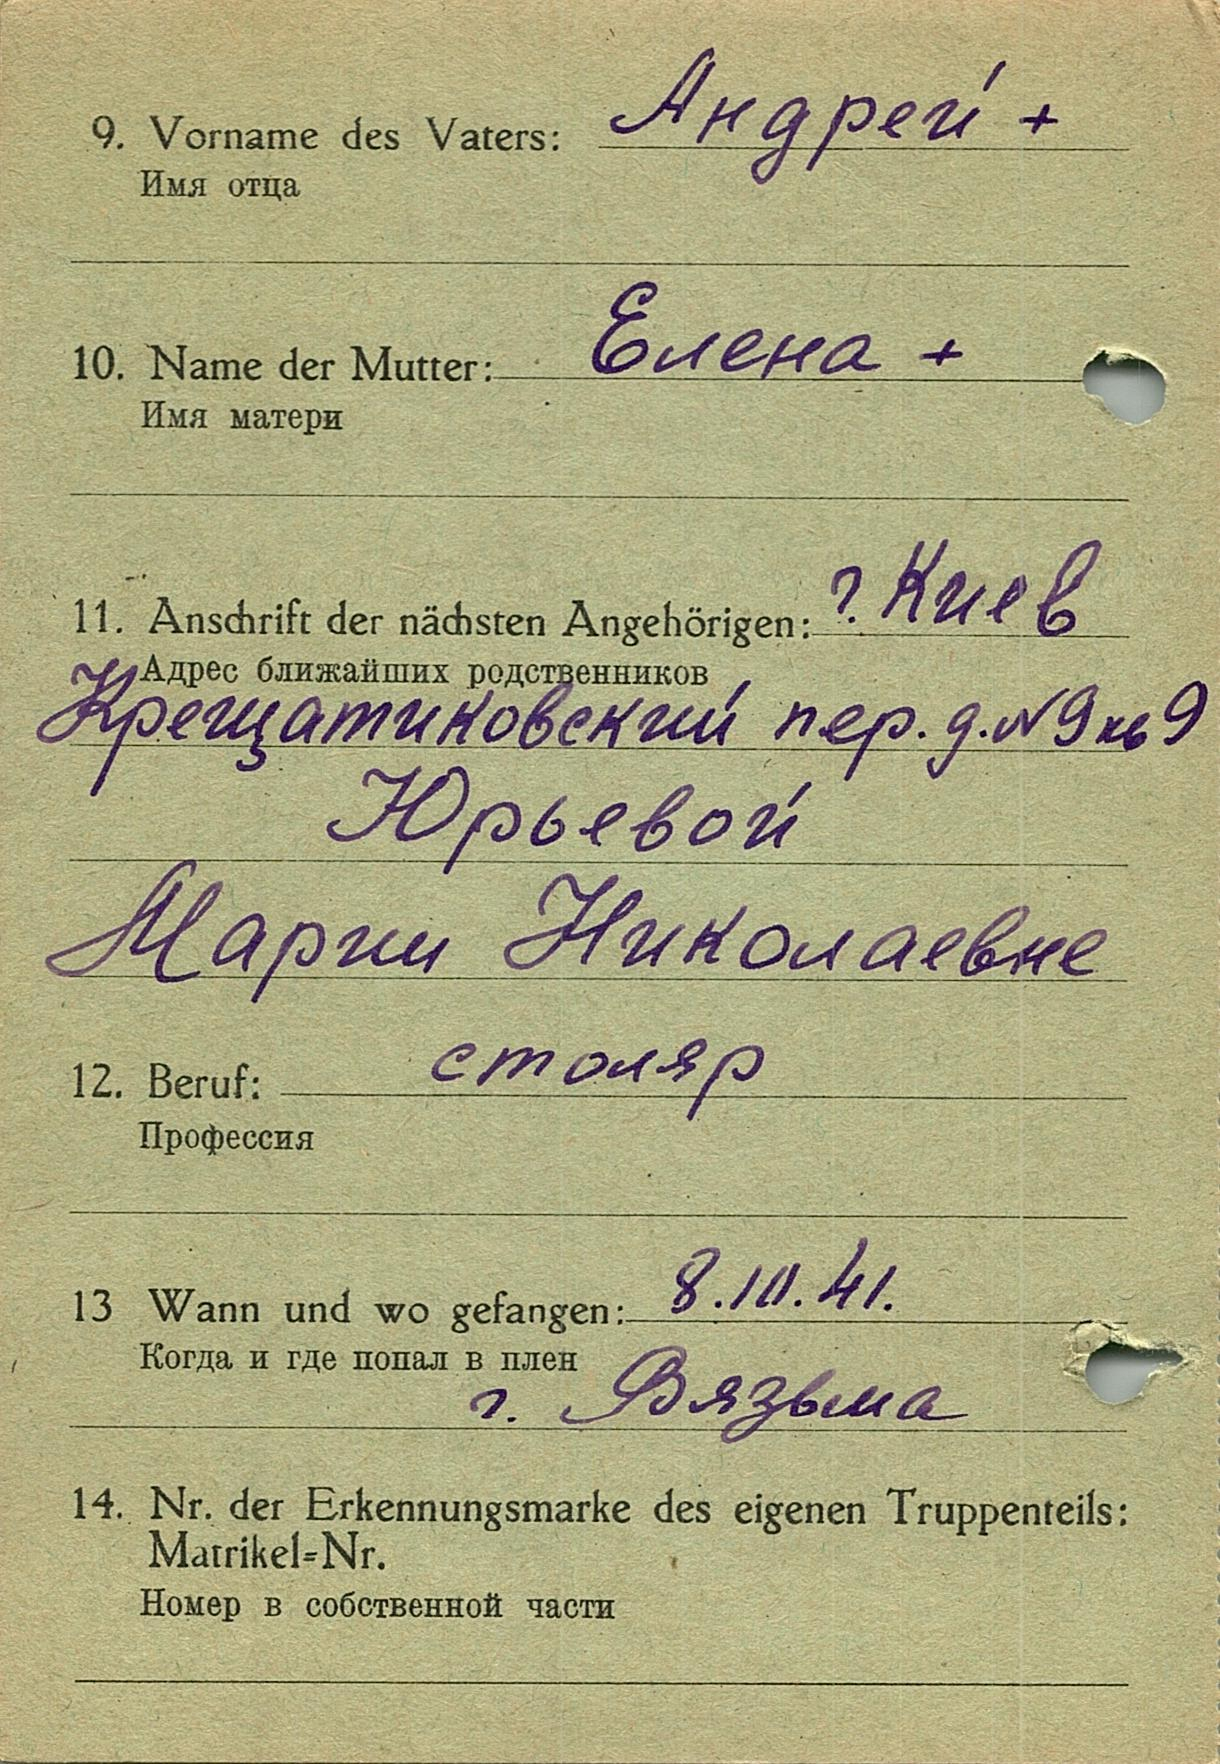 9. Vorname des Vaters: Андрей +
Имя отца
10. Name der Mutter: Елена +
Имя матери
11. Anschrift der nächsten Angehörigen: г. Киев
Адрес ближайших родственников
Крещатиковский пер. д. № 9 кв 9
Юрьевой
Марии Николаевне
12. Beruf: столяр
Профессия
13 Wann und wo gefangen: 8.10.41.
Когда и где попал в плен
г. Вязьма
14. Nr. der Erkennungsmarke des eigenen Truppenteils:
Matrikel=Nr.
Номер в собственной части